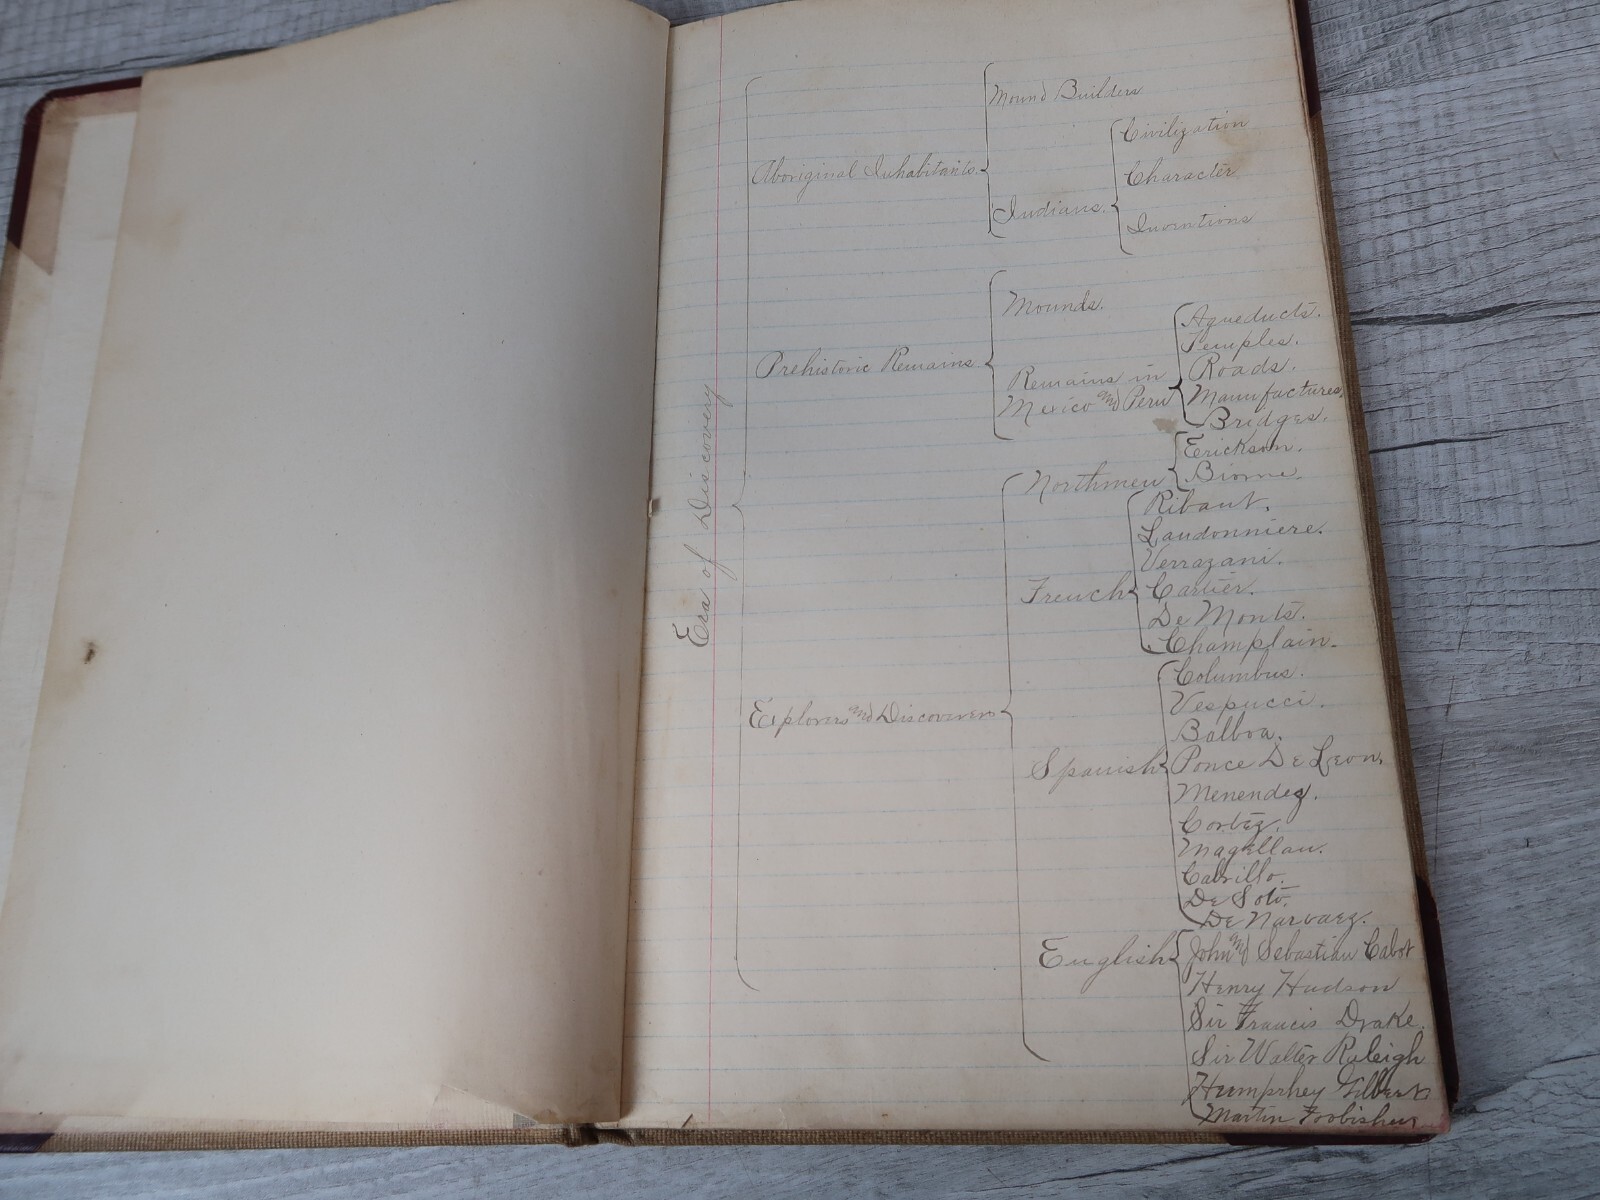 Era of Discovery
Aboriginal Inhabitants.
Mound Builders
Indians.
Civilization
Character
Inventions
Prehistoric Remains
Mounds.
Remains in
Mexico and Peru
Aqueducts.
Temples.
Roads.
Manufactures.
Bridges.
Explorers and Discoverers
Northmen
Erickson.
Biorne.
French
Ribaut.
Laudonniere.
Verrazani.
Cartier.
De Monts.
Champlain.
Spanish
Columbus.
Vespucci.
Balboa.
Ponce De Leon.
Menendez.
Cortez.
Magellan.
Cabrillo.
De Soto.
De Narvaez.
English
John and Sebastian Cabot
Henry Hudson
Sir Francis Drake.
Sir Walter Raleigh
Humprhey Gilbert
Martin Frobisher